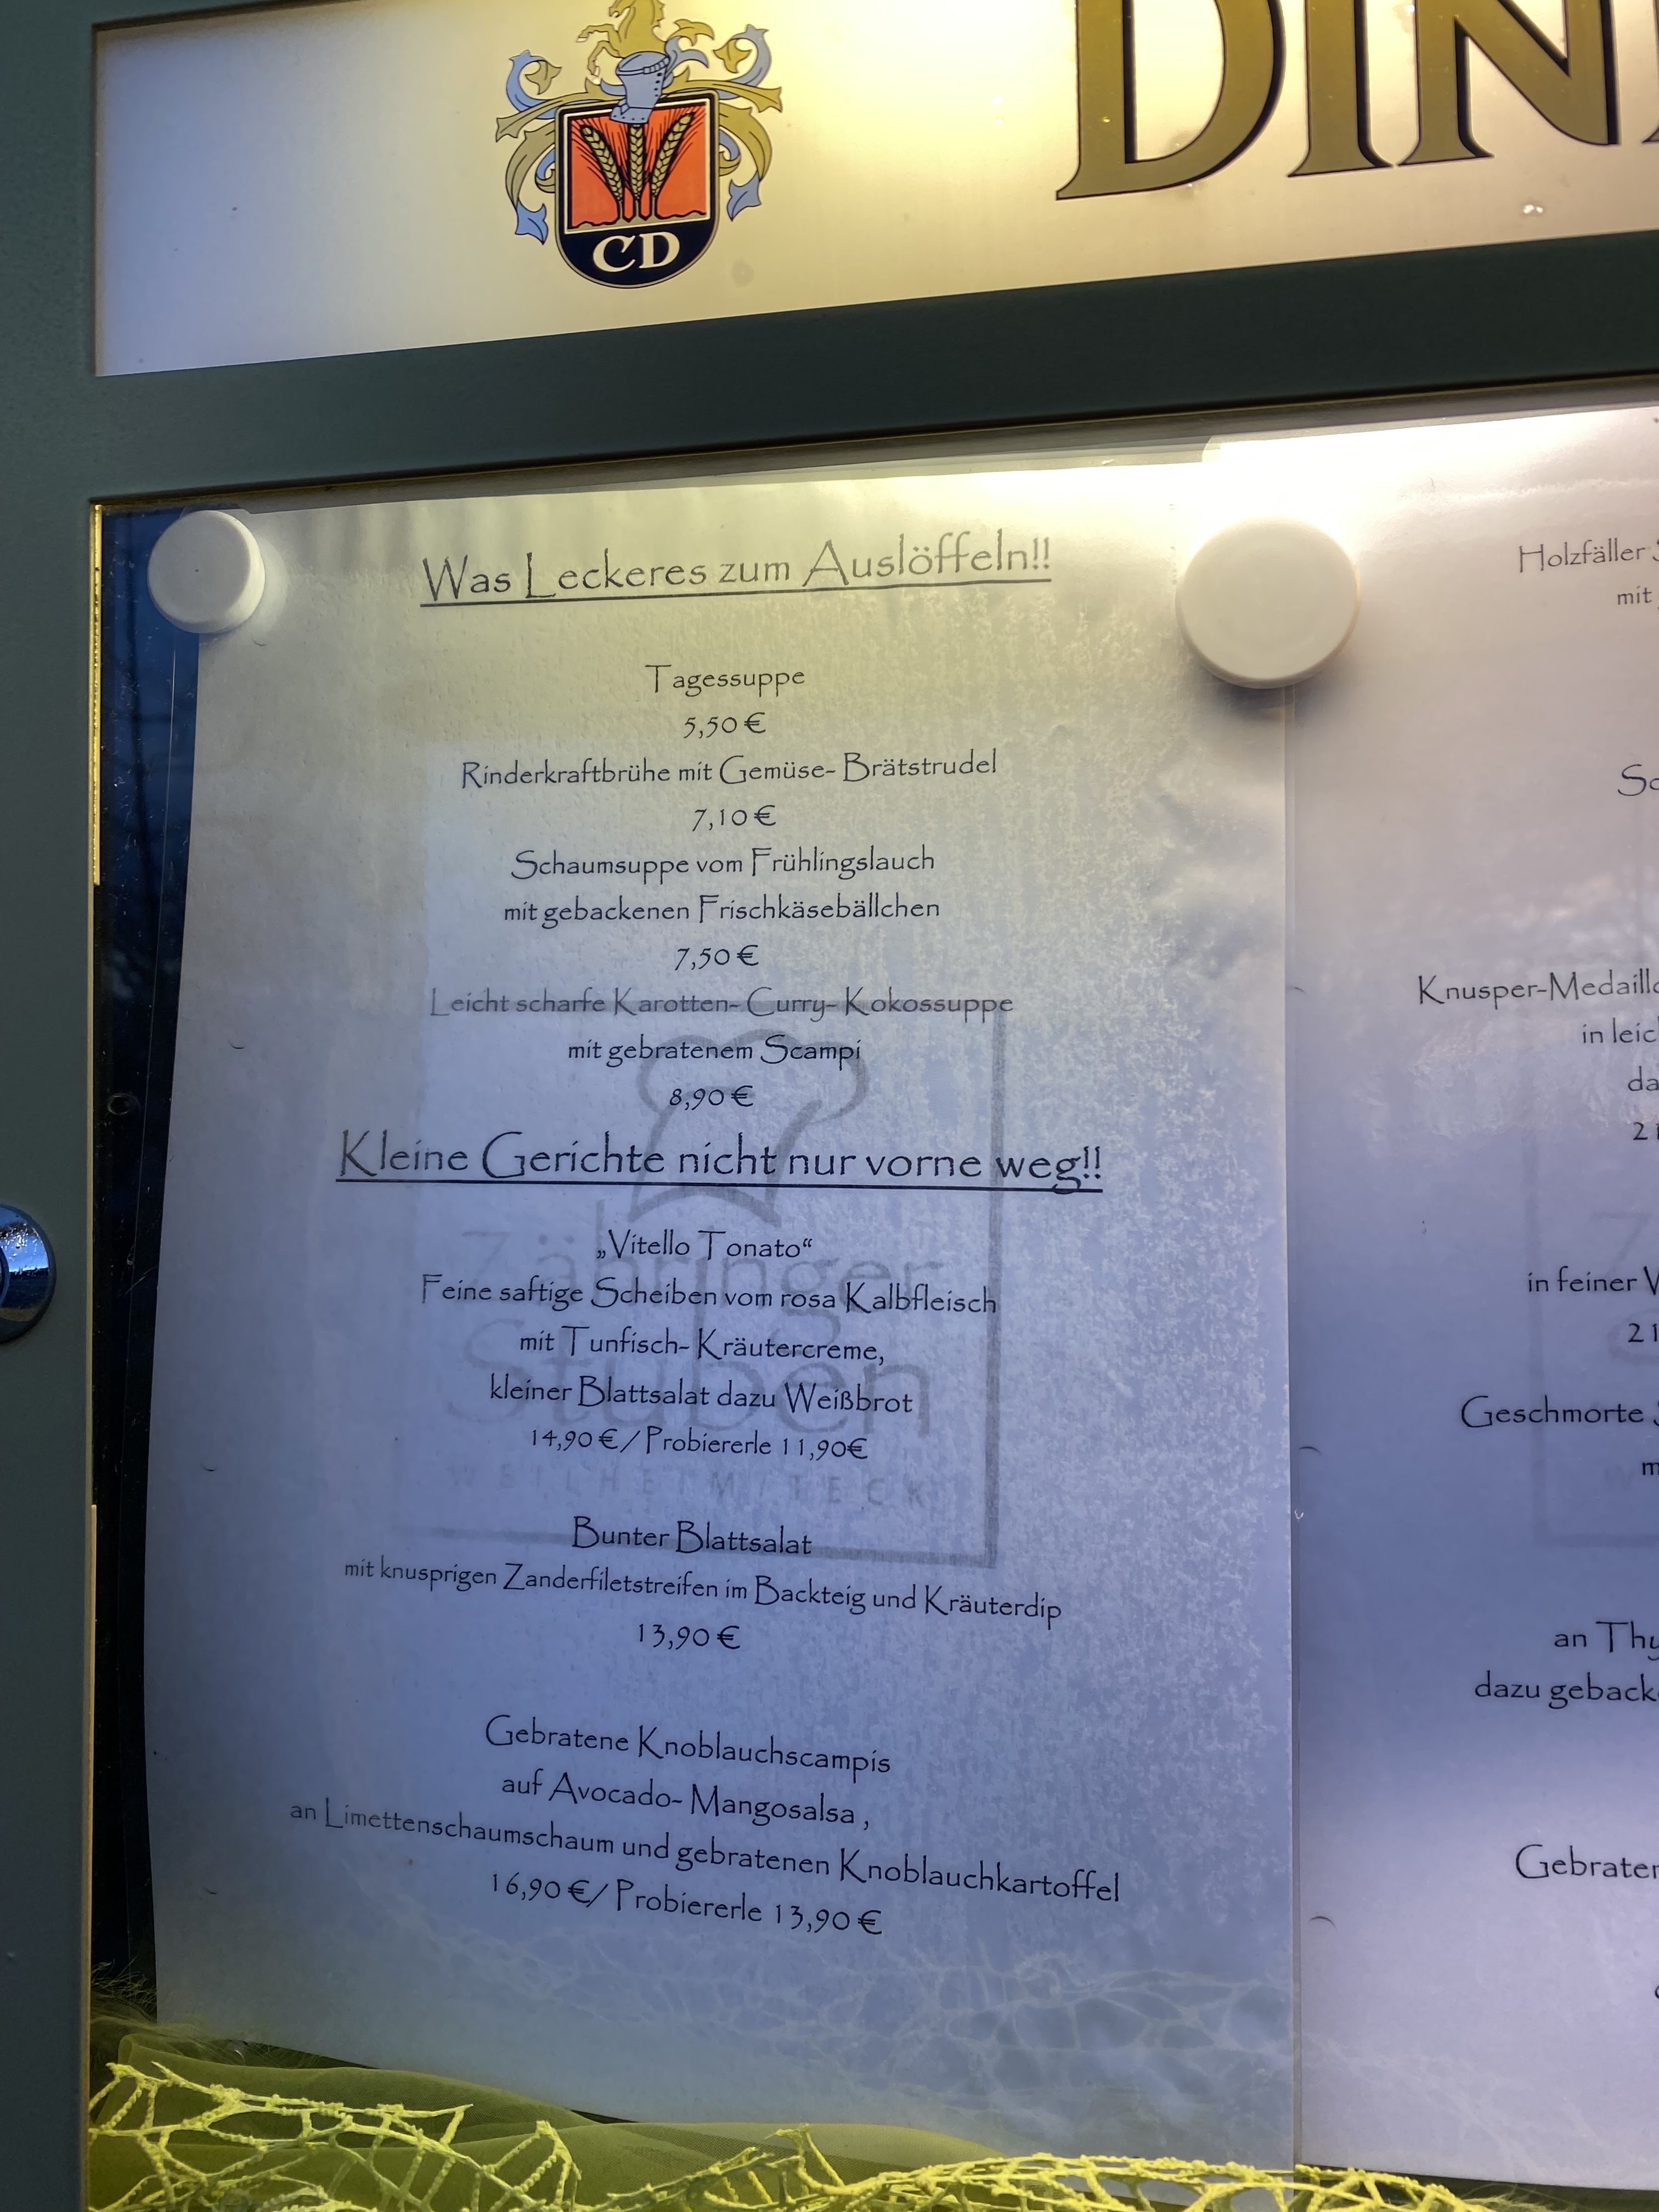 CD
DIN
Was Leckeres zum Auslöffeln!!
Tagessuppe
5,50 €
Rinderkraftbrühe mit Gemüse- Brätstrudel
7,10 €
Schaumsuppe vom Frühlingslauch
mit gebackenen Frischkäsebällchen
7,50 €
Leicht scharfe Karotten- Curry- Kokossuppe
mit gebratenem Scampi
8,90 €
Kleine Gerichte nicht nur vorne weg!!
„Vitello Tonato“
Feine saftige Scheiben vom rosa Kalbfleisch
mit Tunfisch- Kräutercreme,
kleiner Blattsalat dazu Weißbrot
14,90 € / Probiererle 11,90€
Bunter Blattsalat
mit knusprigen Zanderfiletstreifen im Backteig und Kräuterdip
13,90 €
Gebratene Knoblauchscampis
auf Avocado- Mangosalsa ,
an Limettenschaumschaum und gebratenen Knoblauchkartoffel
16,90 €/ Probiererle 13,90 €
Zähringer
Stuben
WEILHEIM/TECK
Holzfäller
mit
Knusper-Medaill
in leic
da
in feiner
Geschmorte
an Thy
dazu geback
Gebraten